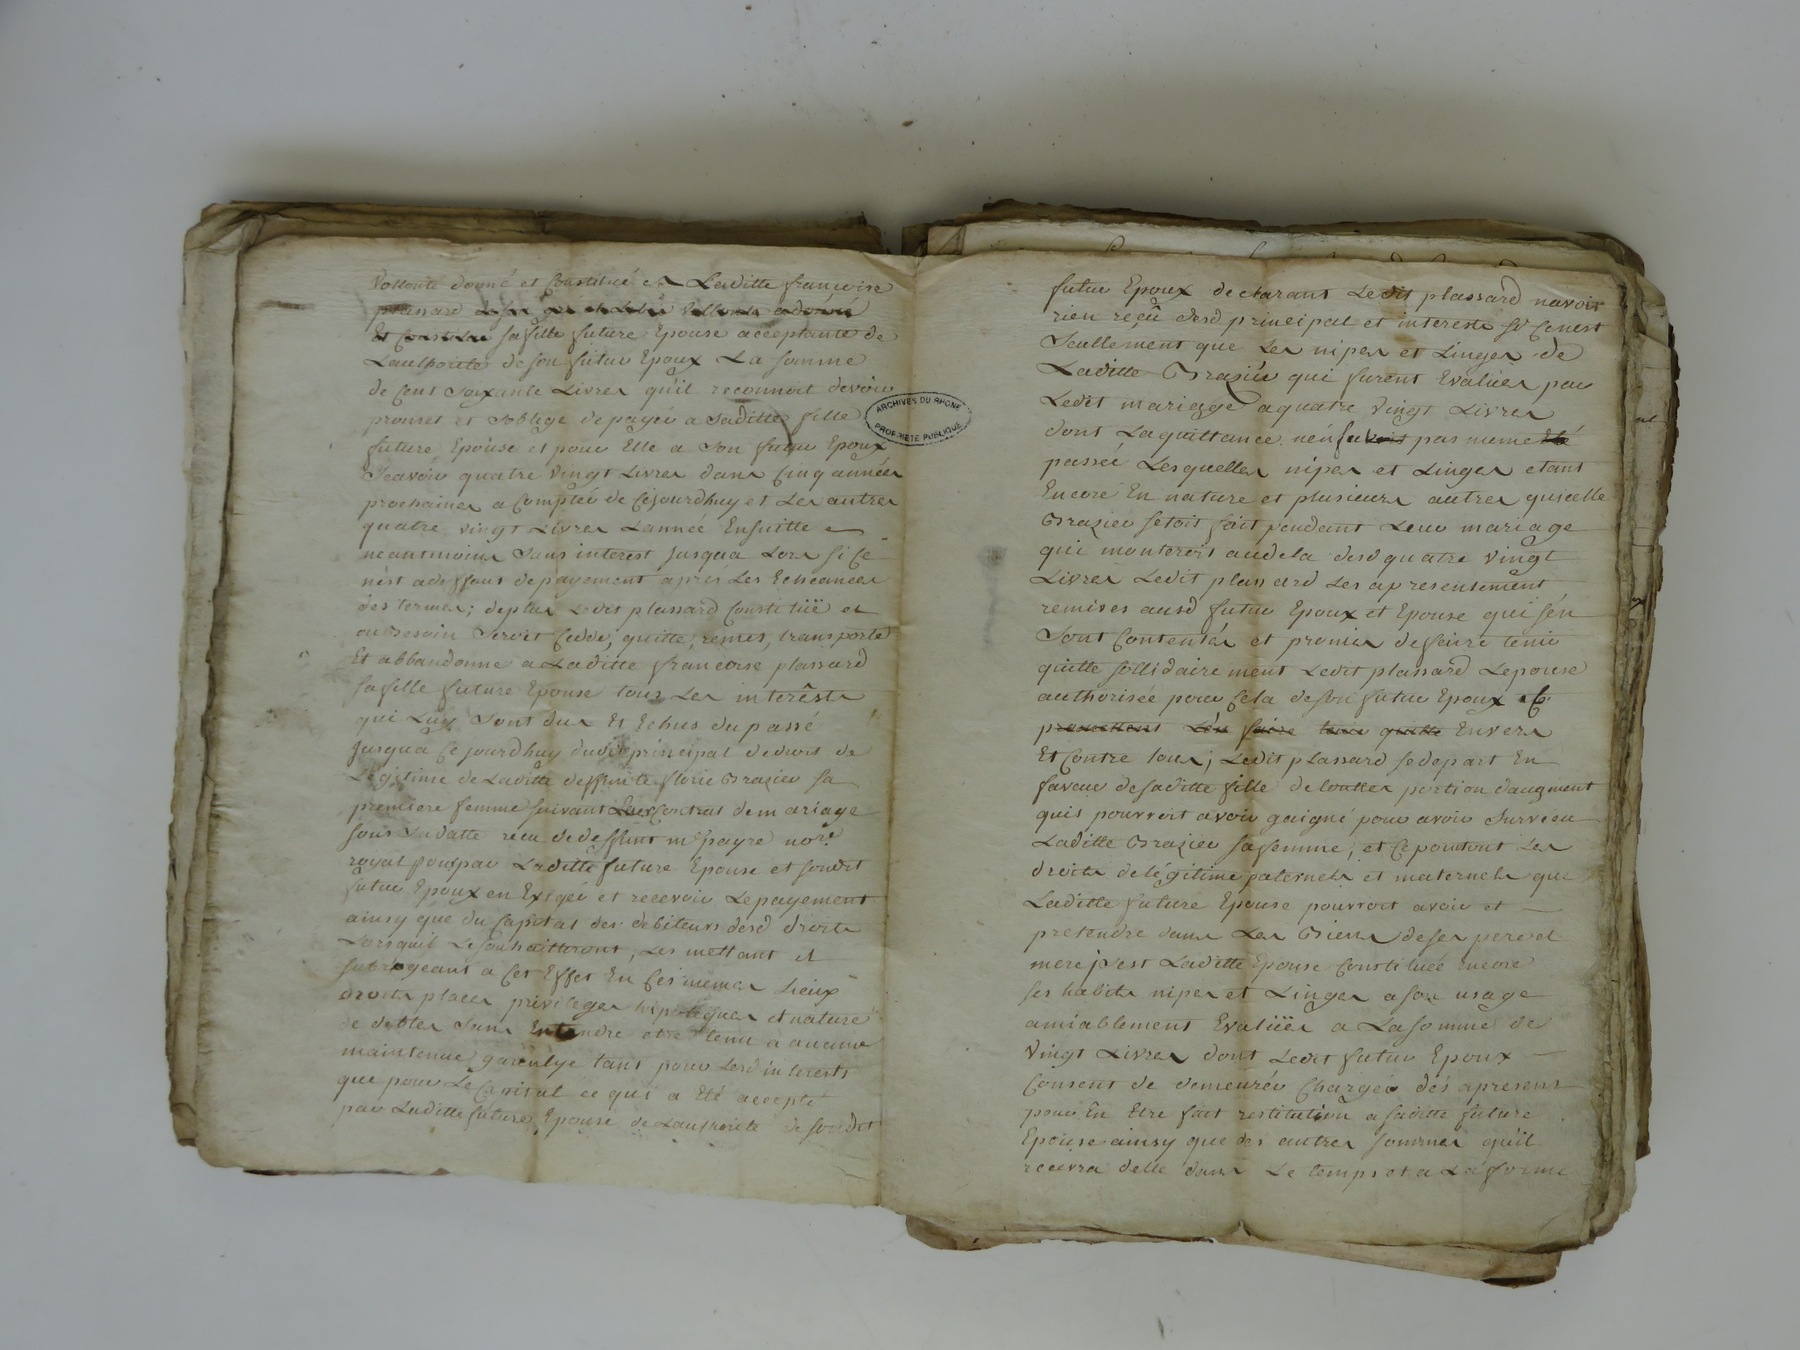 Vollonté donné et Constitué et a Laditte françoise
plassard de son gré et Libre Vollonté a donné
Et Constitué sa fille future Epouse acceptante de
Lauthorité de son futur Epoux La somme
de Cent soixante Livres qu'il reconnoit devoir
promet et soblige de payer a saditte fille
future Epouse et pour Elle a son futur Epoux
Sçavoir quatre vingt Livres dans Cinq années
prochaines a Compter de Cejourdhuy et Les autres
quatre vingt Livres Lannée Ensuitte
neantmoins sans interest jusqua Lors si Ce
nest adeffaut de payement après Les Echeances
des termes; deplus Ledit plassard Constitüe et
ou besoin seroit Cedde, quitte, remet, transporte
Et abbandonne a Laditte francoise plassard
sa fille future Epouse tous Les interêsts
qui Luy sont dus Et Echus du passé
Jusqua Cejourdhuy dudit principal de droit de
Legitime de Laditte deffunte florie Brazier sa
premiere femme suivant Leur Contrat de mariage
sous sa datte recu de deffunt me payre nore
royal pour par Laditte future Epouse et sondit
futur Epoux en Exiger et recevoir Lepayement
ainsy que du Capital des debiteurs desd droits
Lorsquil Lesouhaitteront, Les mettant et
subrogeant a Cet Effet En Ces memes Lieux
droits places privileges hipoteques et nature
de dettes sans Entendre etre tenu a aucune
maintenue garentye tant pour Lesd interests
que pour Le Capital ce qui a Eté accepté
par Laditte future Epouse de Lauthorité de sondit
ARCHIVES DU RHONE
PROPRIETE PUBLIQUE
futur Epoux declarant Ledit plassard navoir
rien reçû desd principal et interests si Cenest
seullement que Les nipes et Linges de
Laditte Brazier qui furent Evalüés par
Ledit mariage a quatre vingt Livres
dont La quittance nen fut pas meme Eté
passée Lesquelles nipes et Linges etant
Encore En nature et plusieurs autres quicelle
Brazier setoit fait pendant Leur mariage
qui monteroit audela desd quatre vingt
Livres Ledit plassard Les a presentement
remises ausd futur Epoux et Epouse qui sén
sont Contentés et promis de sen tenir
quitte sollidairement Ledit plassard Lepouse
authorisée pour Cela de son futur Epoux et
promettent Lén faire tenir quitte Envers
Et Contre tous; Ledit plassard sedepart En
faveur de saditte fille de toutte portion daugment
quil pouvroit avoir gaigné pour avoir survecu
Laditte Brazier sa femme; et Ce pour tout Les
droits de légitime paternels et maternels que
Laditte future Epouse pouvroit avoir et
pretendre dans Les Biens de ses pere et
mere; sest Laditte Epouse Constituée Encore
ses habits nipes et Linges a son usage
amiablement Evalüés a La somme de
vingt Livres dont Ledit futur Epoux
Consent de demeurer Chargé dés apresent
pour En Etre fait restitution a saditte future
Epouse ainsy que des autres sommes qu'il
recevra delle dans Le temps et a La forme